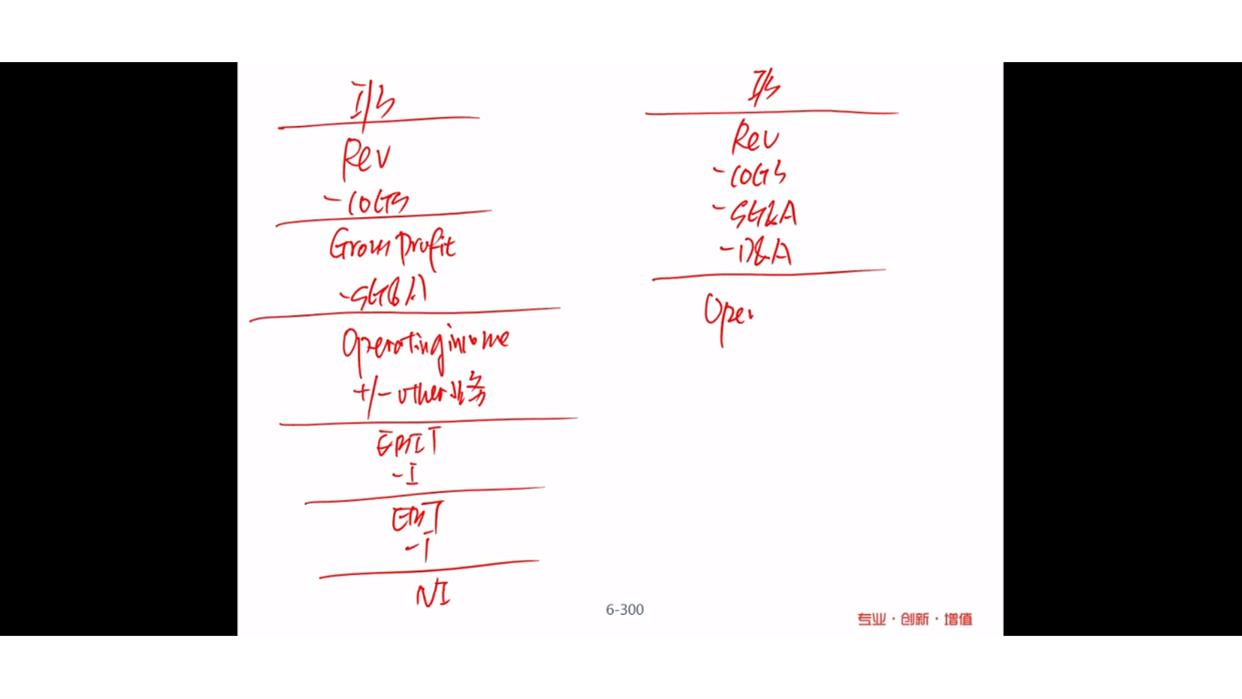 I/S
Rev
-COGS
Gross Profit
-SG&A
Operating income
+/- other 业务
EBIT
-I
EBT
-T
NI
I/S
Rev
-COGS
-SG&A
-D&A
Oper
6-300
专业·创新·增值